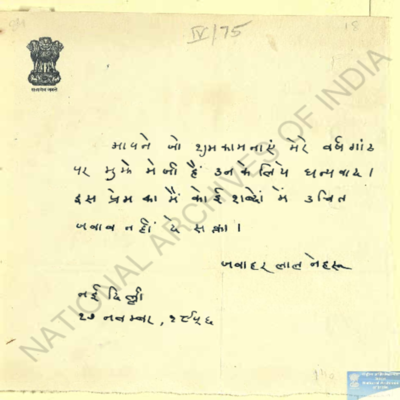 IV/75
18
सत्यमेव जयते
आपने जो शुभकामनाएं मेरे वर्षगांठ
पर मुझे भेजी हैं उनके लिये धन्यवाद।
इस प्रेम का मैं कोई शब्दों में उचित
जवाब नहीं दे सका।
जवाहर लाल नेहरू
नई दिल्ली
२७ नवम्बर, १९५६
NATIONAL ARCHIVES OF INDIA